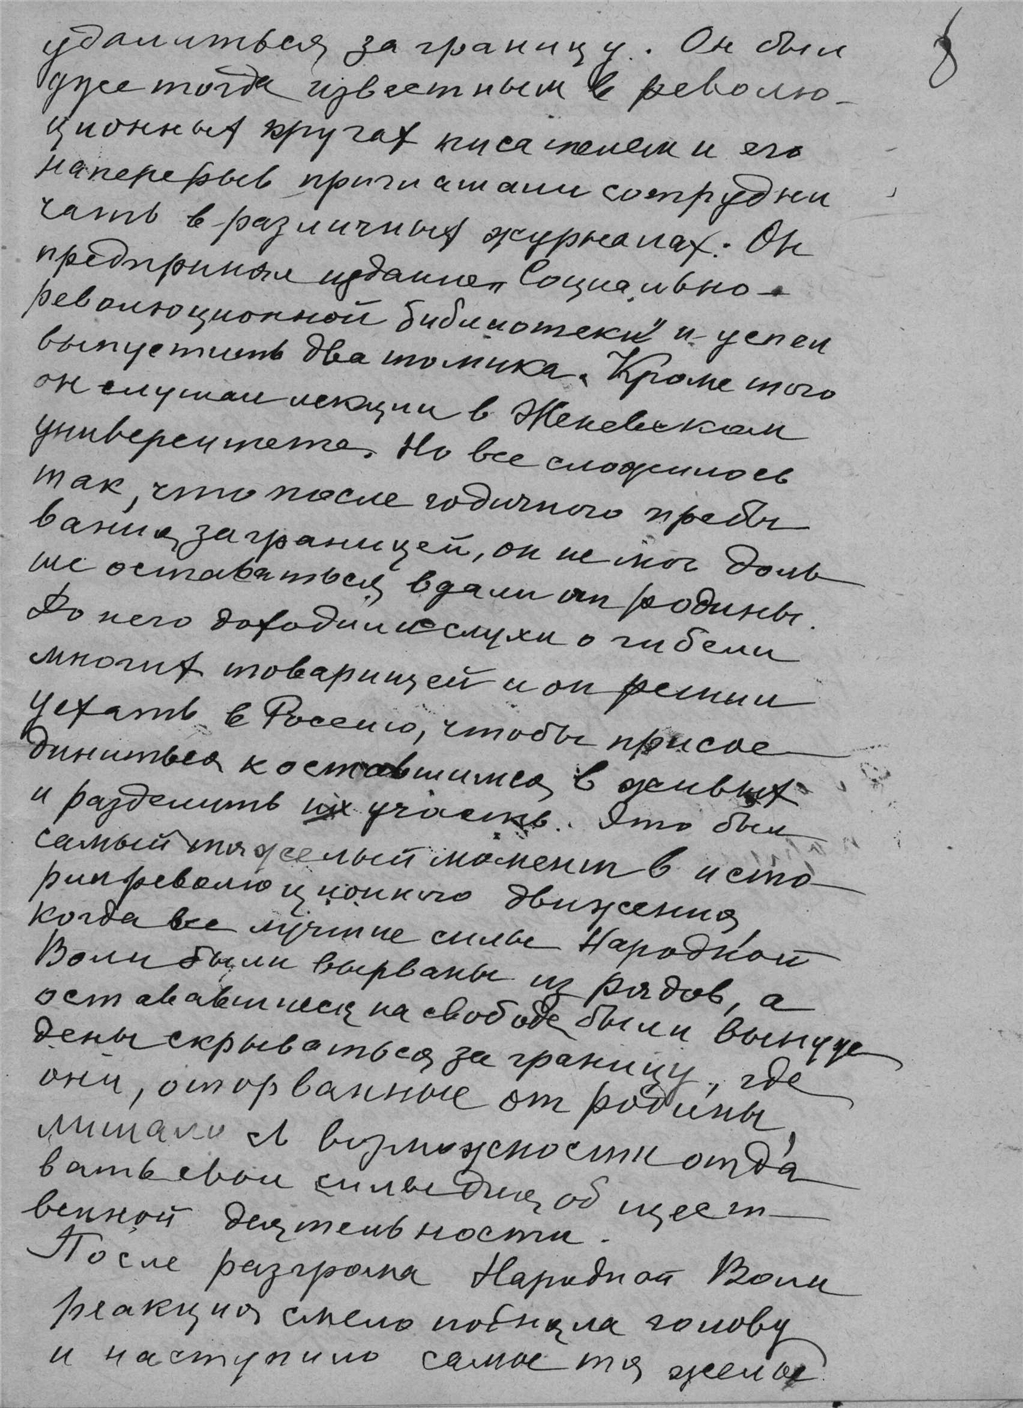 8
удалиться за границу. Он был
уже тогда известным в револю-
ционных кругах писателем и его
наперерыв приглашали сотрудни
чать в различных журналах. Он
предпринял издание „Социально-
революционной библиотеки" и успел
выпустить два томика. Кроме того
он слушал лекции в Женевском
университете. Но все сложилось
так, что после годичного пребы
вания заграницей, он не мог доль
ше оставаться вдали от родины.
До него доходили слухи о гибели
многих товарищей и он решил
уехать в Россию, чтобы присое-
диниться к оставшимся в живых
и разделить их участь. Это был
самый тяжелый момент в исто-
рии революционного движения,
когда все лучшие силы Народной
Воли были вырваны из рядов, а
остававшиеся на свободе были вынуж
дены скрываться за границу, где
они, оторванные от родины,
лишались возможности отда
вать свои силы для общест-
венной деятельности.
После разгрома Народной Воли
реакция смело подняла голову
и наступило самое тяжелое